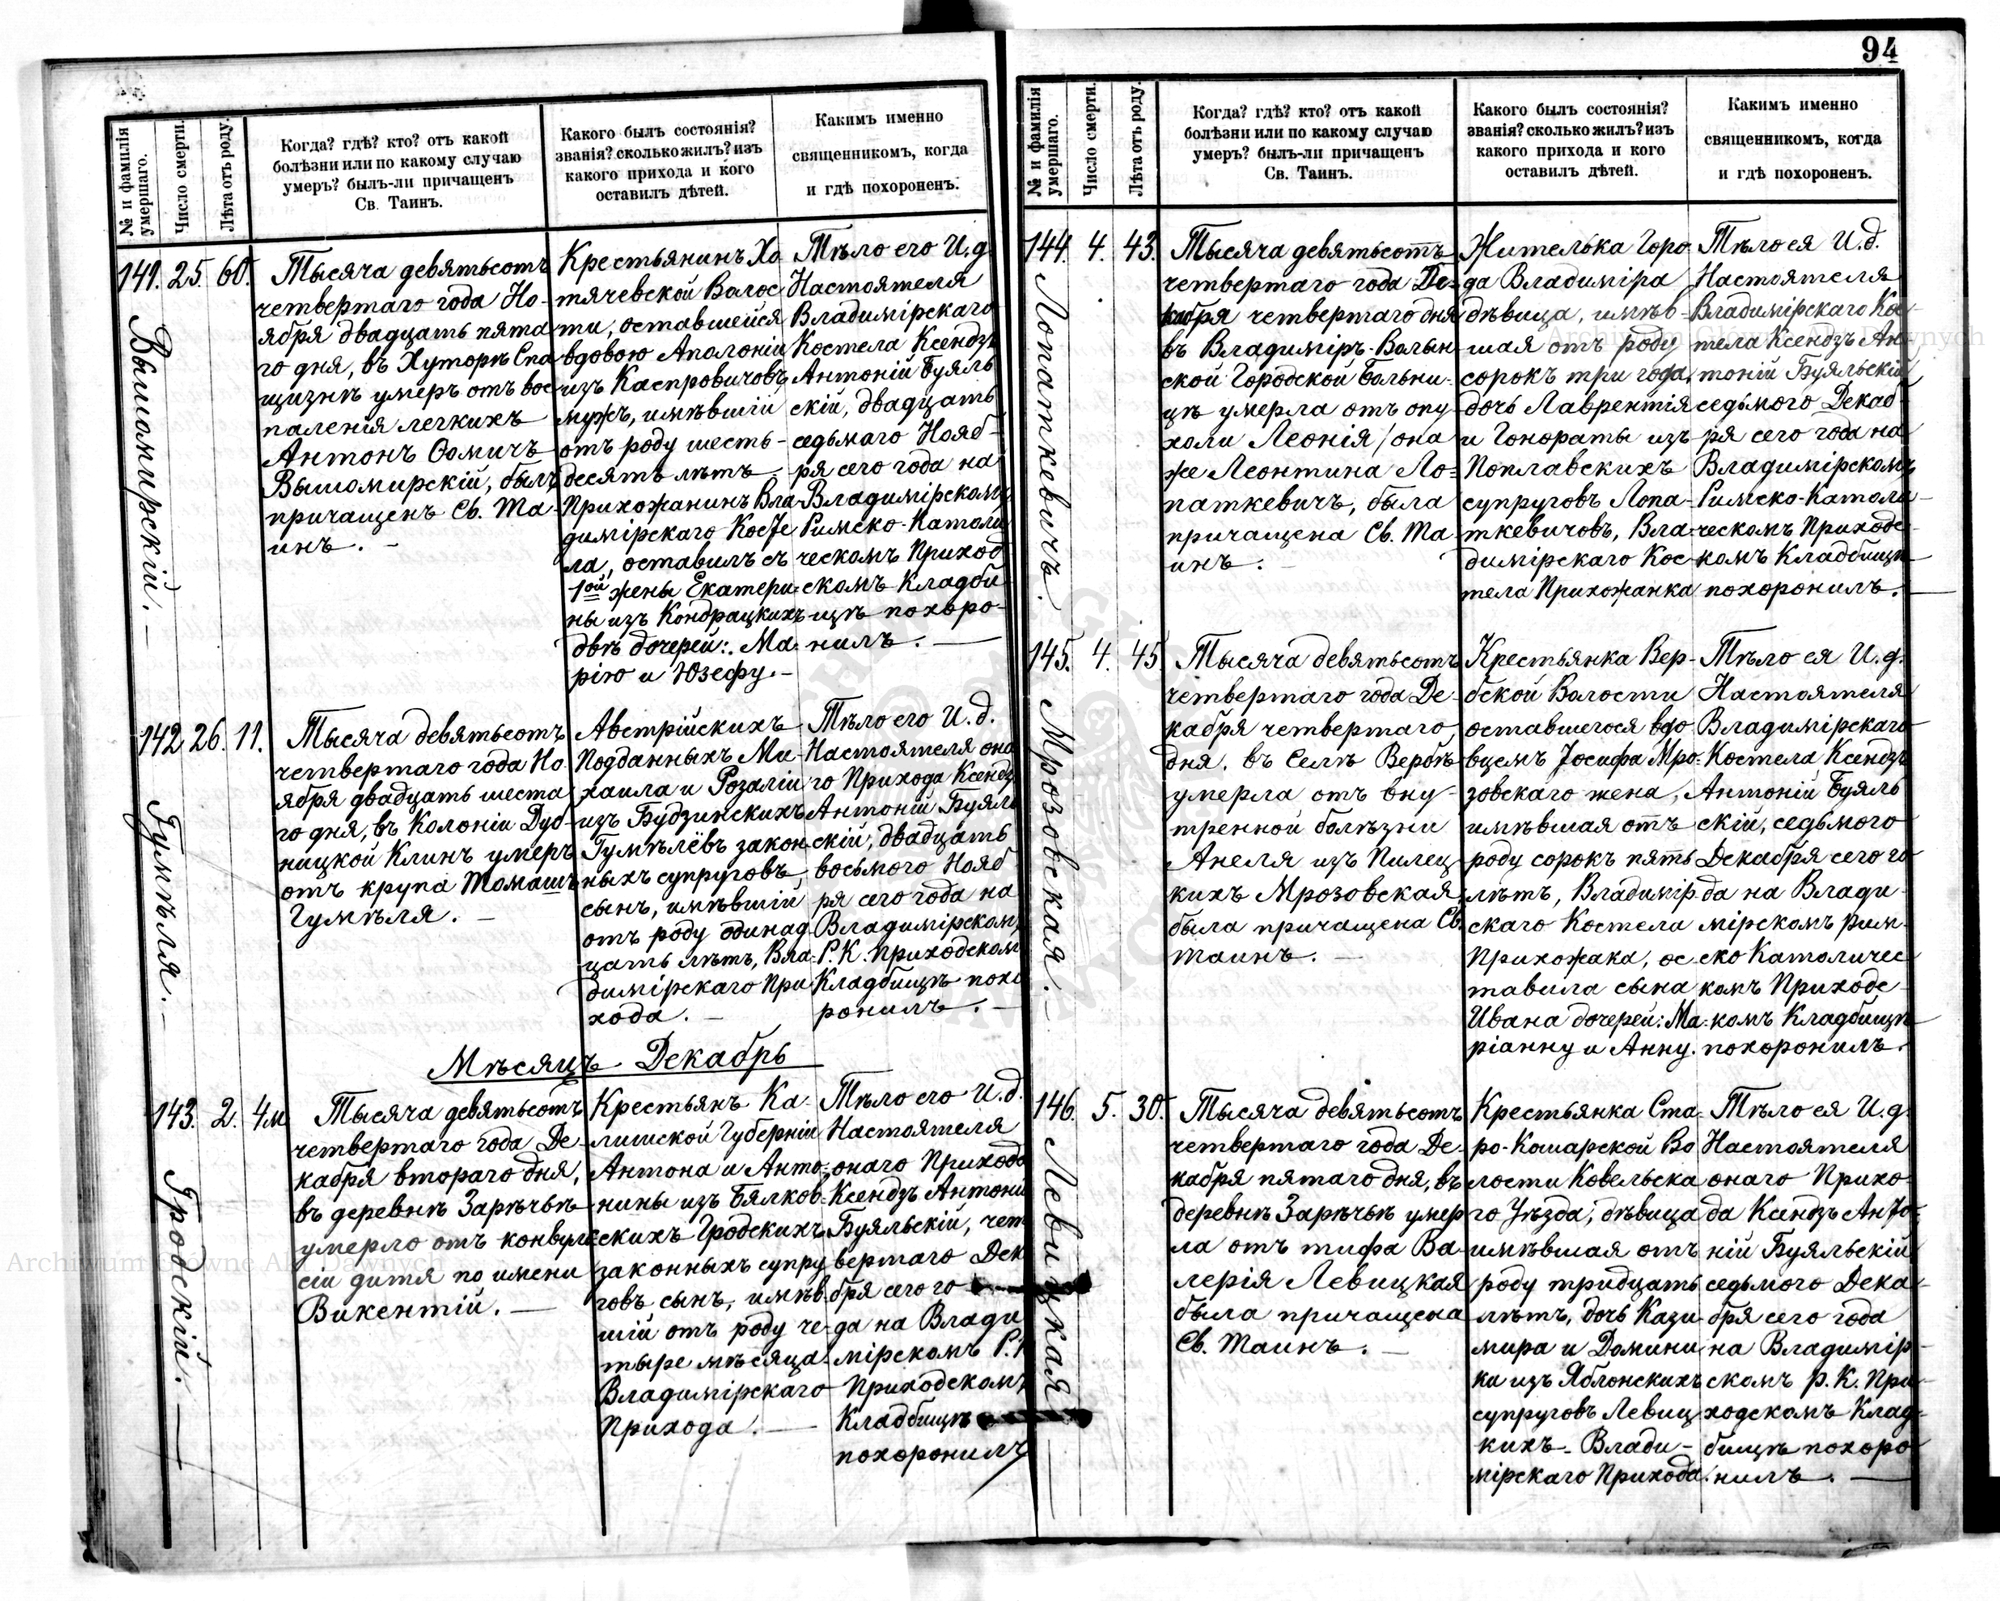 94
№ и фамилія умершаго.
Число смерти.
Лѣта отъ роду.
Когда? гдѣ? кто? отъ какой
болѣзни или по какому случаю
умеръ? былъ-ли причащенъ
Св. Таинъ.
Какого былъ состоянія?
званія? сколько жилъ? изъ
какого прихода и кого
оставилъ дѣтей.
Какимъ именно
священникомъ, когда
и гдѣ похороненъ.
141. 25. 60.
Вышомирскій.
Тысяча девятьсотъ
четвертаго года Но-
ября двадцать пята
го дня, въ Хуторѣ Спа
щизнѣ умеръ отъ вос
паленія легкихъ
Антонъ Ѳомичъ
Вышомирскій, былъ
причащенъ Св. Та-
инъ.
Крестьянинъ Хо
тячевской Волос
ти, оставшейся
вдовою Аполоніи
изъ Каспровичовъ
мужъ, имѣвшій
отъ роду шесть-
десятъ лѣтъ.
Прихожанинъ Вла-
димірскаго Косте
ла, оставилъ съ
1ой жены Екатери-
ны изъ Кондрацкихъ
двѣ дочерей: Ма-
рію и Юзефу.
Тѣло его И. д.
Настоятеля
Владимірскаго
Костела Ксендзъ
Антоній Буяль
скій, двадцать
седьмаго Нояб-
ря сего года на
Владимірскомъ
Римско-Католи
ческомъ Приход
скомъ Кладби
щѣ похоро-
нилъ.
142. 26. 11.
Гумѣля.
Тысяча девятьсотъ
четвертаго года Но
ября двадцать шеста
го дня, въ Колоніи Дуб
ницкой Клинъ умеръ
отъ крупа Томашъ
Гумѣля.
Австрійскихъ
Подданныхъ Ми-
хаила и Розаліи
изъ Будзинскихъ
Гумѣлёвъ закон-
ныхъ супруговъ,
сынъ, имѣвшій
отъ роду одинад
цать лѣтъ, Вла-
димірскаго При
хода.
Тѣло его И. д.
Настоятеля она
го Прихода Ксендзъ
Антоній Буяль
скій, двадцать
восьмого Нояб
ря сего года на
Владимірскомъ
Р. К. Приходском
Кладбищѣ похо
ронилъ.
Мѣсяцъ Декабрь
143. 2. 4м
Гродскій.
Тысяча девятьсотъ
четвертаго года Де-
кабря втораго дня,
въ деревнѣ Зарѣчьѣ
умерло отъ конвуль
сіи дитя по имени
Викентій.
Крестьянъ Ка-
лишской Губерніи
Антона и Анто-
нины изъ Бялков-
скихъ Гродскихъ
законныхъ супру
говъ сынъ, имѣв
шій отъ роду че-
тыре мѣсяца.
Владимірскаго
Прихода.
Тѣло его И. д.
Настоятеля
онаго Прихода
Ксендзъ Антоній
Буяльскій, чет
вертаго Дека
бря сего го
да на Влади
мірскомъ Р. К.
Приходскомъ
Кладбищѣ
похоронилъ
№ и фамилія умершаго.
Число смерти.
Лѣта отъ роду.
Когда? гдѣ? кто? отъ какой
болѣзни или по какому случаю
умеръ? былъ-ли причащенъ
Св. Таинъ.
Какого былъ состоянія?
званія? сколько жилъ? изъ
какого прихода и кого
оставилъ дѣтей.
Какимъ именно
священникомъ, когда
и гдѣ похороненъ.
144. 4. 43.
Лопаткевичъ.
Тысяча девятьсотъ
четвертаго года Де-
кабря четвертаго дня
въ Владиміръ-Волын
ской Городской больни-
цѣ умерла отъ опу
холи Леонія /она
же Леонтина Ло-
паткевичъ, была
причащена Св. Та
инъ.
Жителька Горо-
да Владиміра
дѣвица, имѣв-
шая отъ роду
сорокъ три года,
дочь Лаврентія
и Гонораты изъ
Поплавскихъ
супруговъ Лопа-
ткевичовъ, Вла-
димірскаго Кос-
тела Прихожанка
Тѣло ея И. д.
Настоятеля
Владимірскаго Ко-
стела Ксендзъ Ан-
тоній Буяльскій
седьмого Декаб-
ря сего года на
Владимірскомъ
Римско-Католи-
ческомъ Приходс-
комъ Кладбищѣ
похоронилъ.
145. 4. 45
Мрозовская.
Тысяча девятьсотъ
четвертаго года Де-
кабря четвертаго,
дня. въ Селѣ Вербѣ
умерла отъ вну-
тренной болѣзни
Анеля изъ Пилец
кихъ Мрозовская,
была причащена Св.
Таинъ.
Крестьянка Вер-
бской Волости
оставшегося вдо
вцемъ Іосифа Мро-
зовскаго жена,
имѣвшая отъ
роду сорокъ пять
лѣтъ, Владимір-
скаго Костела
Прихожака, ос
тавила сына
Ивана дочерей: Ма-
ріанну и Анну.
Тѣло ея И. д.
Настоятеля
Владимірскаго
Костела Ксендзъ
Антоній Буяль
скій, седьмого
Декабря сего го
да на Влади-
мірскомъ рим-
ско Католичес
комъ Приходс-
комъ Кладбищѣ
похоронилъ.
146. 5. 30.
Левицкая
Тысяча девятьсотъ
четвертаго года Де-
кабря пятаго дня, въ
деревнѣ Зарѣчьѣ умер
ла отъ тифа Ва-
лерія Левицкая
была причащена
Св. Таинъ.
Крестьянка Ста-
ро-Кошарской Во
лости Ковельска
го Уѣзда, дѣвица
имѣвшая отъ
роду тридцать
лѣтъ, дочь Кази
мира и Домини
ки изъ Яблонскихъ
супруговъ Левиц
кихъ. Влади-
мірскаго Прихода.
Тѣло ея И. д.
Настоятеля
онаго Прихо-
да Ксендзъ Анто-
ній Буяльскій
седьмого Дека-
бря сего года
на Владимір-
скомъ р. К. При-
ходскомъ Клад-
бищѣ похоро-
нилъ.
Archiwum Główne Akt Dawnych
Archiwum Główne Akt Dawnych